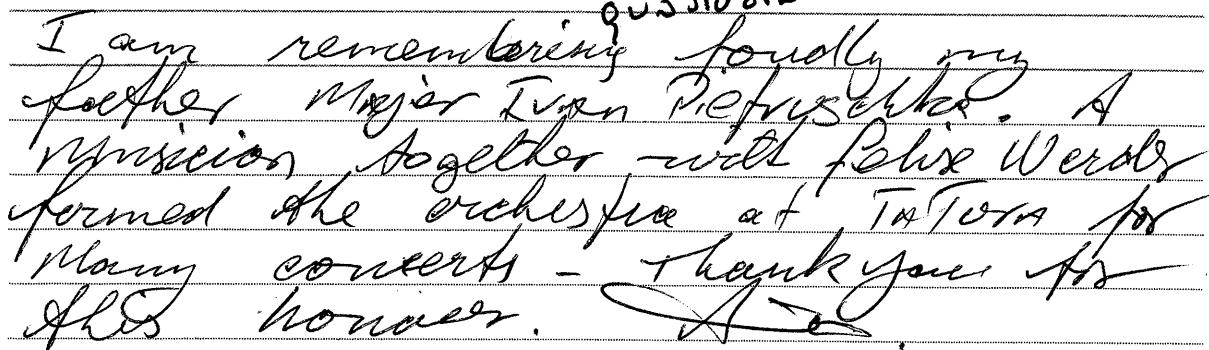 I am remembering fondly my
father Major Ivan Pietruschka. A
Musician together with Felix Werder
formed the orchestra at TATURA for
Many concerts - Thank you for
this honour.